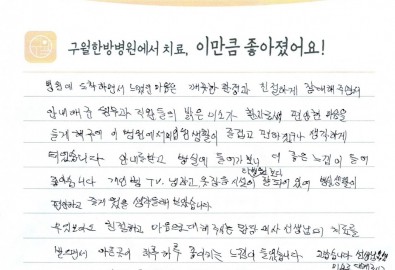 구월한방병원에서 치료, 이만큼 좋아졌어요!
병원에 도착하면서 느꼈던 마음은 깨끗한 환경과 친절하게 잘 대해주면서
안내해준 원무과 직원들의 밝은 미소가 환자로써 편안한 마음을
들게 해주며 이 병원에서의 입원생활이 즐겁고 편하겠다 생각하게
되었습니다 안내를 받고 병실에 들어가보니 더 좋은 느낌이 들어
좋았습니다 개인별 TV, 냉장고, 옷장등 시설이 잘 되어 있어 병실생활이
타병원보다
편하고 즐거웠던 생각들에 보았습니다
무엇보다도 친절하고 다음으로 대해주시는 담당 의사 선생님의 치료를
받으면서 아픈곳이 하루하루 좋아지는 느낌이 들었습니다 고맙습니다 선생님